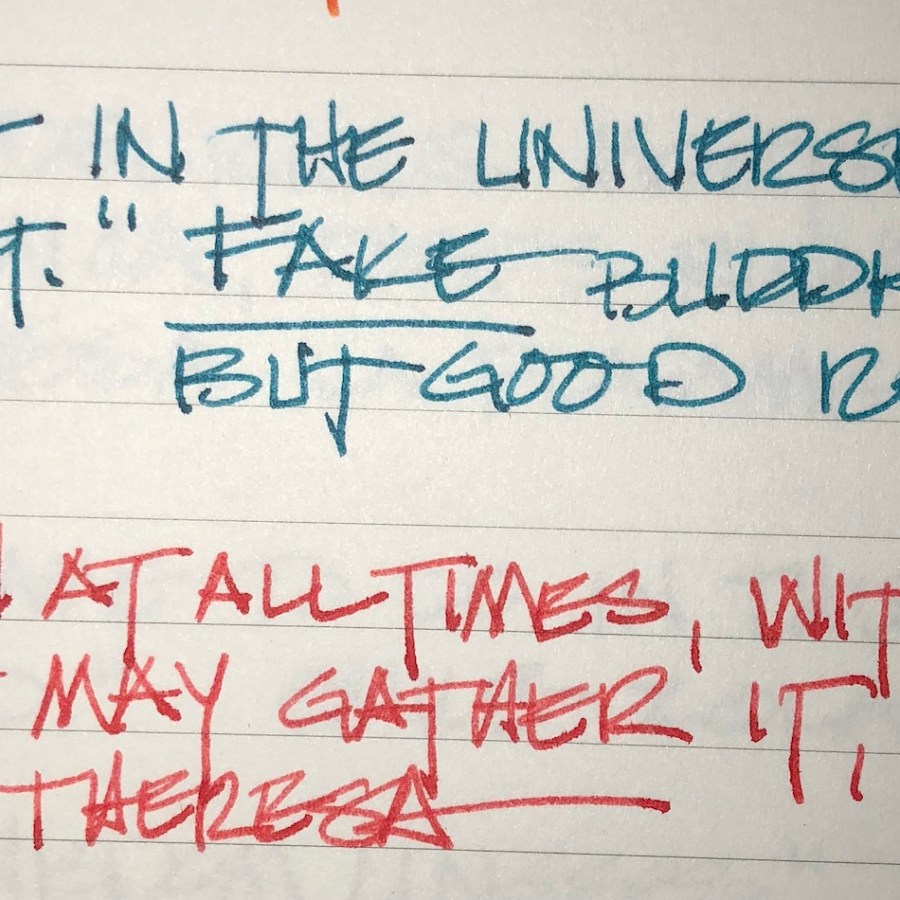 IN THE UNIVERSE
T." FAKE BUDDH
BUT GOOD
AT ALL TIMES, WIT
MAY GATHER IT,
THERESA